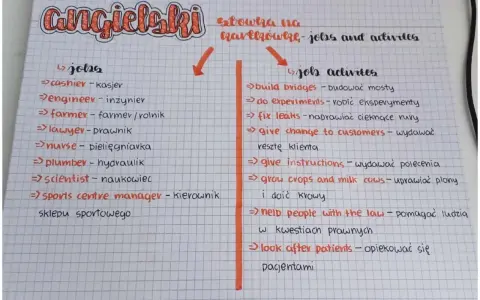 angielski
słówka na
kartkówkę - jobs and activites
↳ jobs
⇒ cashier - kasjer
⇒ engineer - inżynier
⇒ farmer - farmer/rolnik
⇒ lawyer - prawnik
⇒ nurse - pielęgniarka
⇒ plumber - hydraulik
⇒ scientist - naukowiec
⇒ sports centre manager - kierownik
sklepu sportowego
↳ job activites
⇒ build bridges - budować mosty
⇒ do experiments - robić eksperymenty
⇒ fix leaks - naprawiać cieknące rury
⇒ give change to customers - wydawać
resztę klienta
⇒ give instructions - wydawać polecenia
⇒ grow crops and milk cows - uprawiać plony
i doić krowy
⇒ help people with the law - pomagać ludzią
w kwestiach prawnych
⇒ look after patients - opiekować się
pacjentami